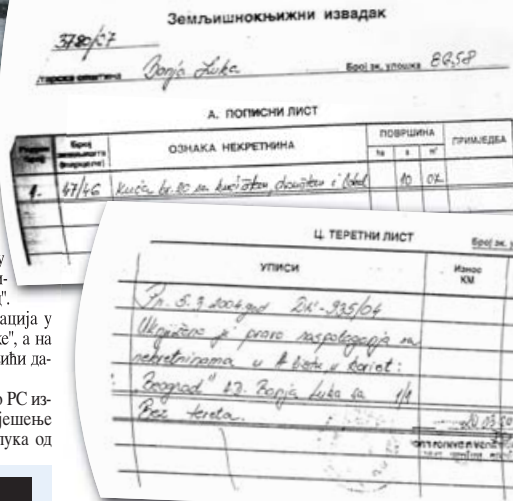 Земљишнокњижни извадак
3780/07
Banja Luka
Број зк. улошка 8258
А. ПОПИСНИ ЛИСТ
Број
ОЗНАКА НЕКРЕТНИНА
ПОВРШИНА
ПРИМЈЕДБА
ha a m²
1. 47/46 Kuća br. 20 sa i 10 07
Ц. ТЕРЕТНИ ЛИСТ
Број зк. у
УПИСИ
Износ
КМ
Pr. 5. 2004. god DN-935/04
Uknjiženo je pravo raspolaganja na
nekretninama u A listu u korist:
"Beograd" A.D. Banja Luka sa 1/1
Bez tereta.
у
и-
".
ација у
е", а на
вићи да-
о РС из-
јешење
лука од